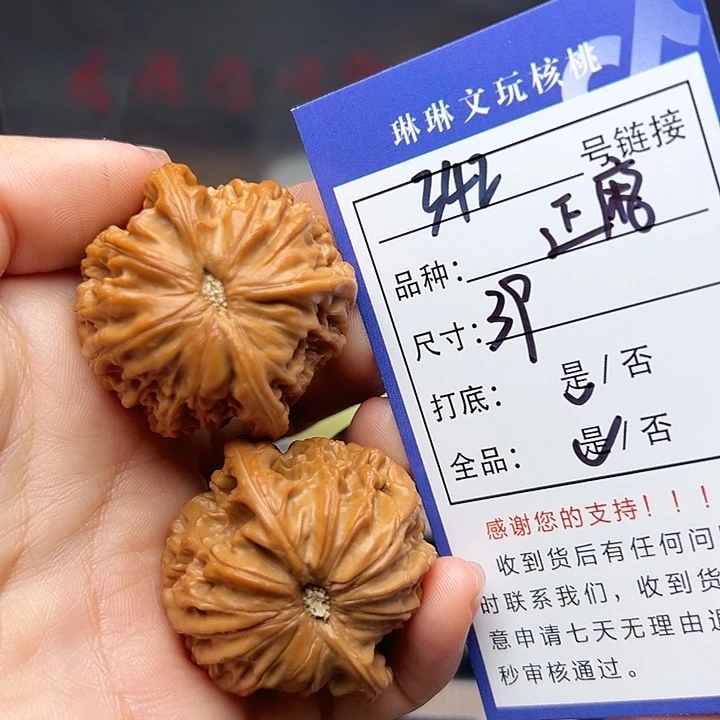 琳琳文玩核桃
342 号链接
品种： 正
尺寸： 39
打底： 是 / 否
全品： 是 / 否
感谢您的支持！！！
收到货后有任何问
时联系我们，收到货
意申请七天无理由
秒审核通过。